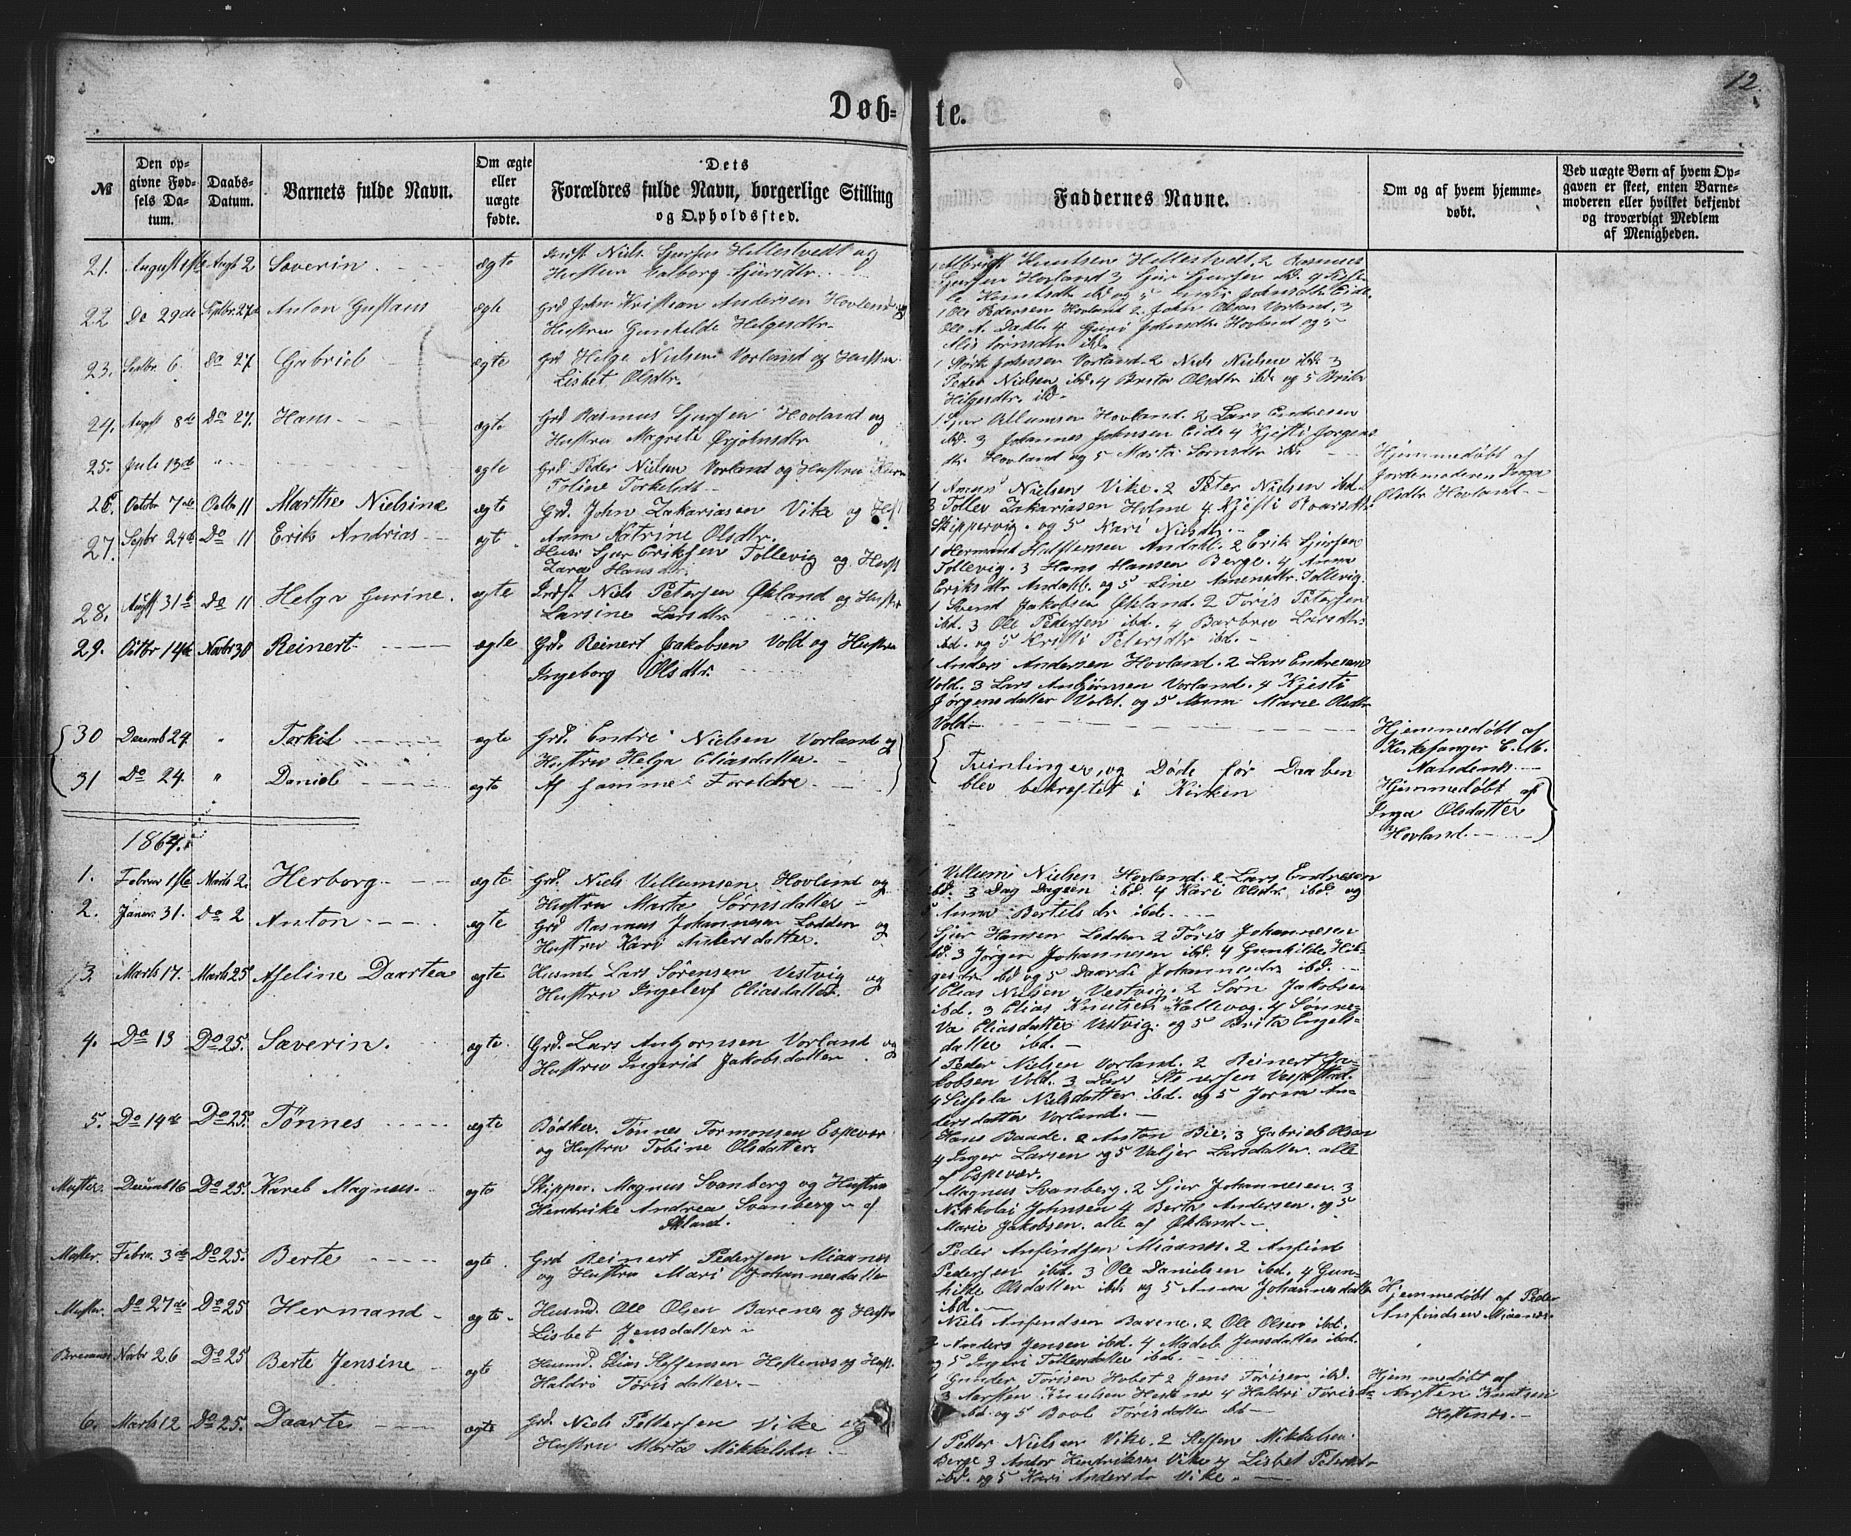 12.
Døb- te.
№
Den opgivne Fødsels Datum.
Daabs-Datum.
Barnets fulde Navn.
Om ægte eller uægte fødte.
Dets Forældres fulde Navn, borgerlige Stilling og Opholdssted.
Faddernes Navne.
Om og af hvem hjemmedøbt.
Ved uægte Børn af hvem Opgaven er skeet, enten Barnemoderen eller hvilket bekjendt og troværdigt Medlem af Menigheden.
21. August 1ste Augst 2 Severin ægte Niels Gjursen Hellestvedt og
Hustru Valborg Gjursdtr.
1 Albrigt Knutsen Hellestvedt. 2 Rasmus
Gjursen Hovland 3 Gjur Gjursen ibd. 4
22 Do 29de Septbr. 27de Anton Gustaus ægte Grd John Kristian Andersen Hovland og
Hustru Gunhilde Helgesdtr.
1 Ole Pedersen Hovland 2 John Olsen Vorland, 3
Ole A. Dahle 4 Guro Johnsdtr Hovland og 5
23. Septbr 6. Do 27. Gabriel ægte Grd Helge Nielsen Vorland og Hustru
Lisbet Olsdtr.
Johnsen Vorland. 2 Niels Nielsen ibd. 3
Peder Nielsen ibd. 4 Brita Olsdtr ibd. og 5
Helgesdtr. ibd.
24. Augst 8de Do 27. Hans ægte Grd Rasmus Gjursen Hovland og
Hustru Magrete Ørjohnsdtr
1 Gjur Villumsen Hovland. 2 Lars Endresen
ibd. 3 Johannes Johnsen Eide 4 Kjesti Jørgens
dtr Hovland og 5 Marta Sørnsdtr ibd.
25. Juli 13de " ægte Grd. Peder Nielsen Vorland og Hustru Karen
Toline Torkelsdtr
Hjemmedøbt af
Jordemoderen Inga
Olsdtr Hovland.
26. Octobr 7de Octbr 11 Marthe Nielsine ægte Grd. John Zakariasen Vike og Hust
Anna Katrine Olsdtr.
1 Amus Nielsen Vike. 2 Peter Nielsen ibd.
3 Tollev Zakariasen Holme 4 Kjesti Roarsdtr
Skippervig. og 5 Kari Nielsdtr.
27. Septbr 24de Do 11 Erik Andrias ægt. Husm Gjur Eriksen Tollevig og Hust
Zara Hansdtr.
1 Hermand Halstensen Andahl. 2 Erik Gjursen
Tollevig. 3 Hans Hansen Berge. 4 Anna
Eriksdtr Andahl og 5 Line Amundsdtr Tollevig.
28. Augst 31te Do 11 Helga Gurine. ægte Niels Petersen Økland og Hustru
Larsine Larsdtr
1 Svend Jakobsen Økland. 2 Tøris Petersen
ibd. 3 Ole Pedersen ibd. 4 Barbru Larsdtr.
ibd. og 5 Kristi Petersdtr ibd.
29. Octbr 14de Novbr 30 Reinert ægte Grd. Reinert Jakobsen Vold og Hustru
Ingeborg Olsdtr.
1 Anders Andersen Hovland. 2 Lars Endresen
Vold. 3 Lars Anbjørnsen Vorland. 4 Kjesti
Jørgensdatter Vold. og 5 Anna Marie Olsdtr
Vold
30 Decemb 24. " Torkil ægte Grd. Endre Nielsen Vorland og
Hustru Helga Eliasdatter.
Tvinlinger, og Døde før Daaben
blev bekræftet i Kirken
Hjemmedøbt af
Kirkesanger C. M.
31 Do 24. " Daniel ægte Af samme Foreldre.
Hjemmedøbt af
Inga Olsdatter
Hovland.
1864.
1. Februar 1ste Marts 2. Herborg. ægte Grd. Niels Villumsen Hovland og
Hustru Marte Sørnsdatter
1 Villum Nielsen Hovland. 2 Lars Endresen
ibd. 3 Dag Dagsen ibd. 4 Kari Olsdtr. ibd. og
5 Anna Bertilsdtr ibd.
2. Januar 31. Do 2 Anton ægte Grd Rasmus Johannesen Lodden og
Hustru Kari Andersdatter.
1 Gjur Hansen Lodden 2 Tøris Johannesen
ibd. 3 Jørgen Johannesen ibd. 4 Gunhilde Hel-
gesdtr ibd og 5 Daarde Johannesdtr ibd.
3. Marts 17. Marts 25 Aseline Daartea ægte Husmd Lars Sørensen Vestvig og
Hustru Ingelev Eliasdatter.
1 Elias Nilsen Vestvig. 2 Sørn Jakobsen
ibd. 3 Elias Knutsen Kallevog. 4 Sønne-
va Eliasdatter Vestvig. og 5 Brita Engels-
datter ibd.
4. Do 13 Do 25. Severin. ægte. Grd. Lars Anbjørnsen Vorland og
Hustru Ingerid Jakobsdatter
1 Peder Nielsen Vorland. 2 Reinert Ja-
kobsen Vold. 3 Lars Stenersen Vespestad.
4 Sissela Nielsdatter ibd. og 5 Jorna An-
dersdatter Vorland.
5. Do 14de Do 25. Tønnes ægte Bødker. Tønnes Tormonsen Espevær
og Hustru Tobine Olsdatter.
1 Hans Baade. 2 Anton Bie. 3 Gabriel Olsen
4 Inger Larsen og 5 Valjer Larsdatter. alle
af Espevær.
Moster. Decemb 16 Do 25. Karel Magnus ægte Skipper. Magnus Svanberg og Hustru
Hendrike Andrea Svanberg af
Økland.
1 Magnus Svanberg. 2 Gjur Johannesen. 3
Nikkolai Johnsen 4 Berta Andersen. og 5
Marie Jakobsen. alle af Økland.
Moster. Febru. 3de Do 25. Berte ægte. Grd Reinert Pedersen Miaanes
og Hustru Mari Johannesdatter
1 Peder Anfindsen Miaanes. 2 Anfind
Pedersen ibd. 3 Ole Danielsen ibd. 4 Gun-
hilde Olsdatter ibd og 5 Anna Johannesdatter
ibd.
Hjemmedøbt af Peder
Anfindsen Miaanes.
Moster. Do 27de Do 25 Hermand ægte Husmd. Ole Olsen Barenes og Hustru
Lisbet Jensdatter
1 Niels Anfindsen Barene. 2 Ole Olsen ibd.
3 Anders Jensen ibd. 4 Madele Jensdatter ibd.
og 5 Ingeri Tollevsdatter ibd.
Bremnes Novbr 26 Do 25 Berte Jensine ægte Husmd. Elias Steffensen Hestenes og Hust.
Haldri Tørisdatter.
1 Gunder Tørisen Hobet 2 Jens Tørisen ibd.
3 Aarsten Knutsen Hestenes 4 Haldri Tørisdtr
ibd. og 5 Boel Tørisdatter ibd
Hjemmedøbt af
Aarsten Knutsen
Hestenes.
6. Marts 12 Do 25. Daarte ægte Grd. Niels Pettersen Vike og
Hustru Marta Mikkelsdtr
1 Petter Nielsen Vike. 2 Steffen Mikkelsen
Berge 3 Andor Hendriksen Vike 4 Lisbet Petersdtr
ibd. og 5 Kari Andersdtr Vike.